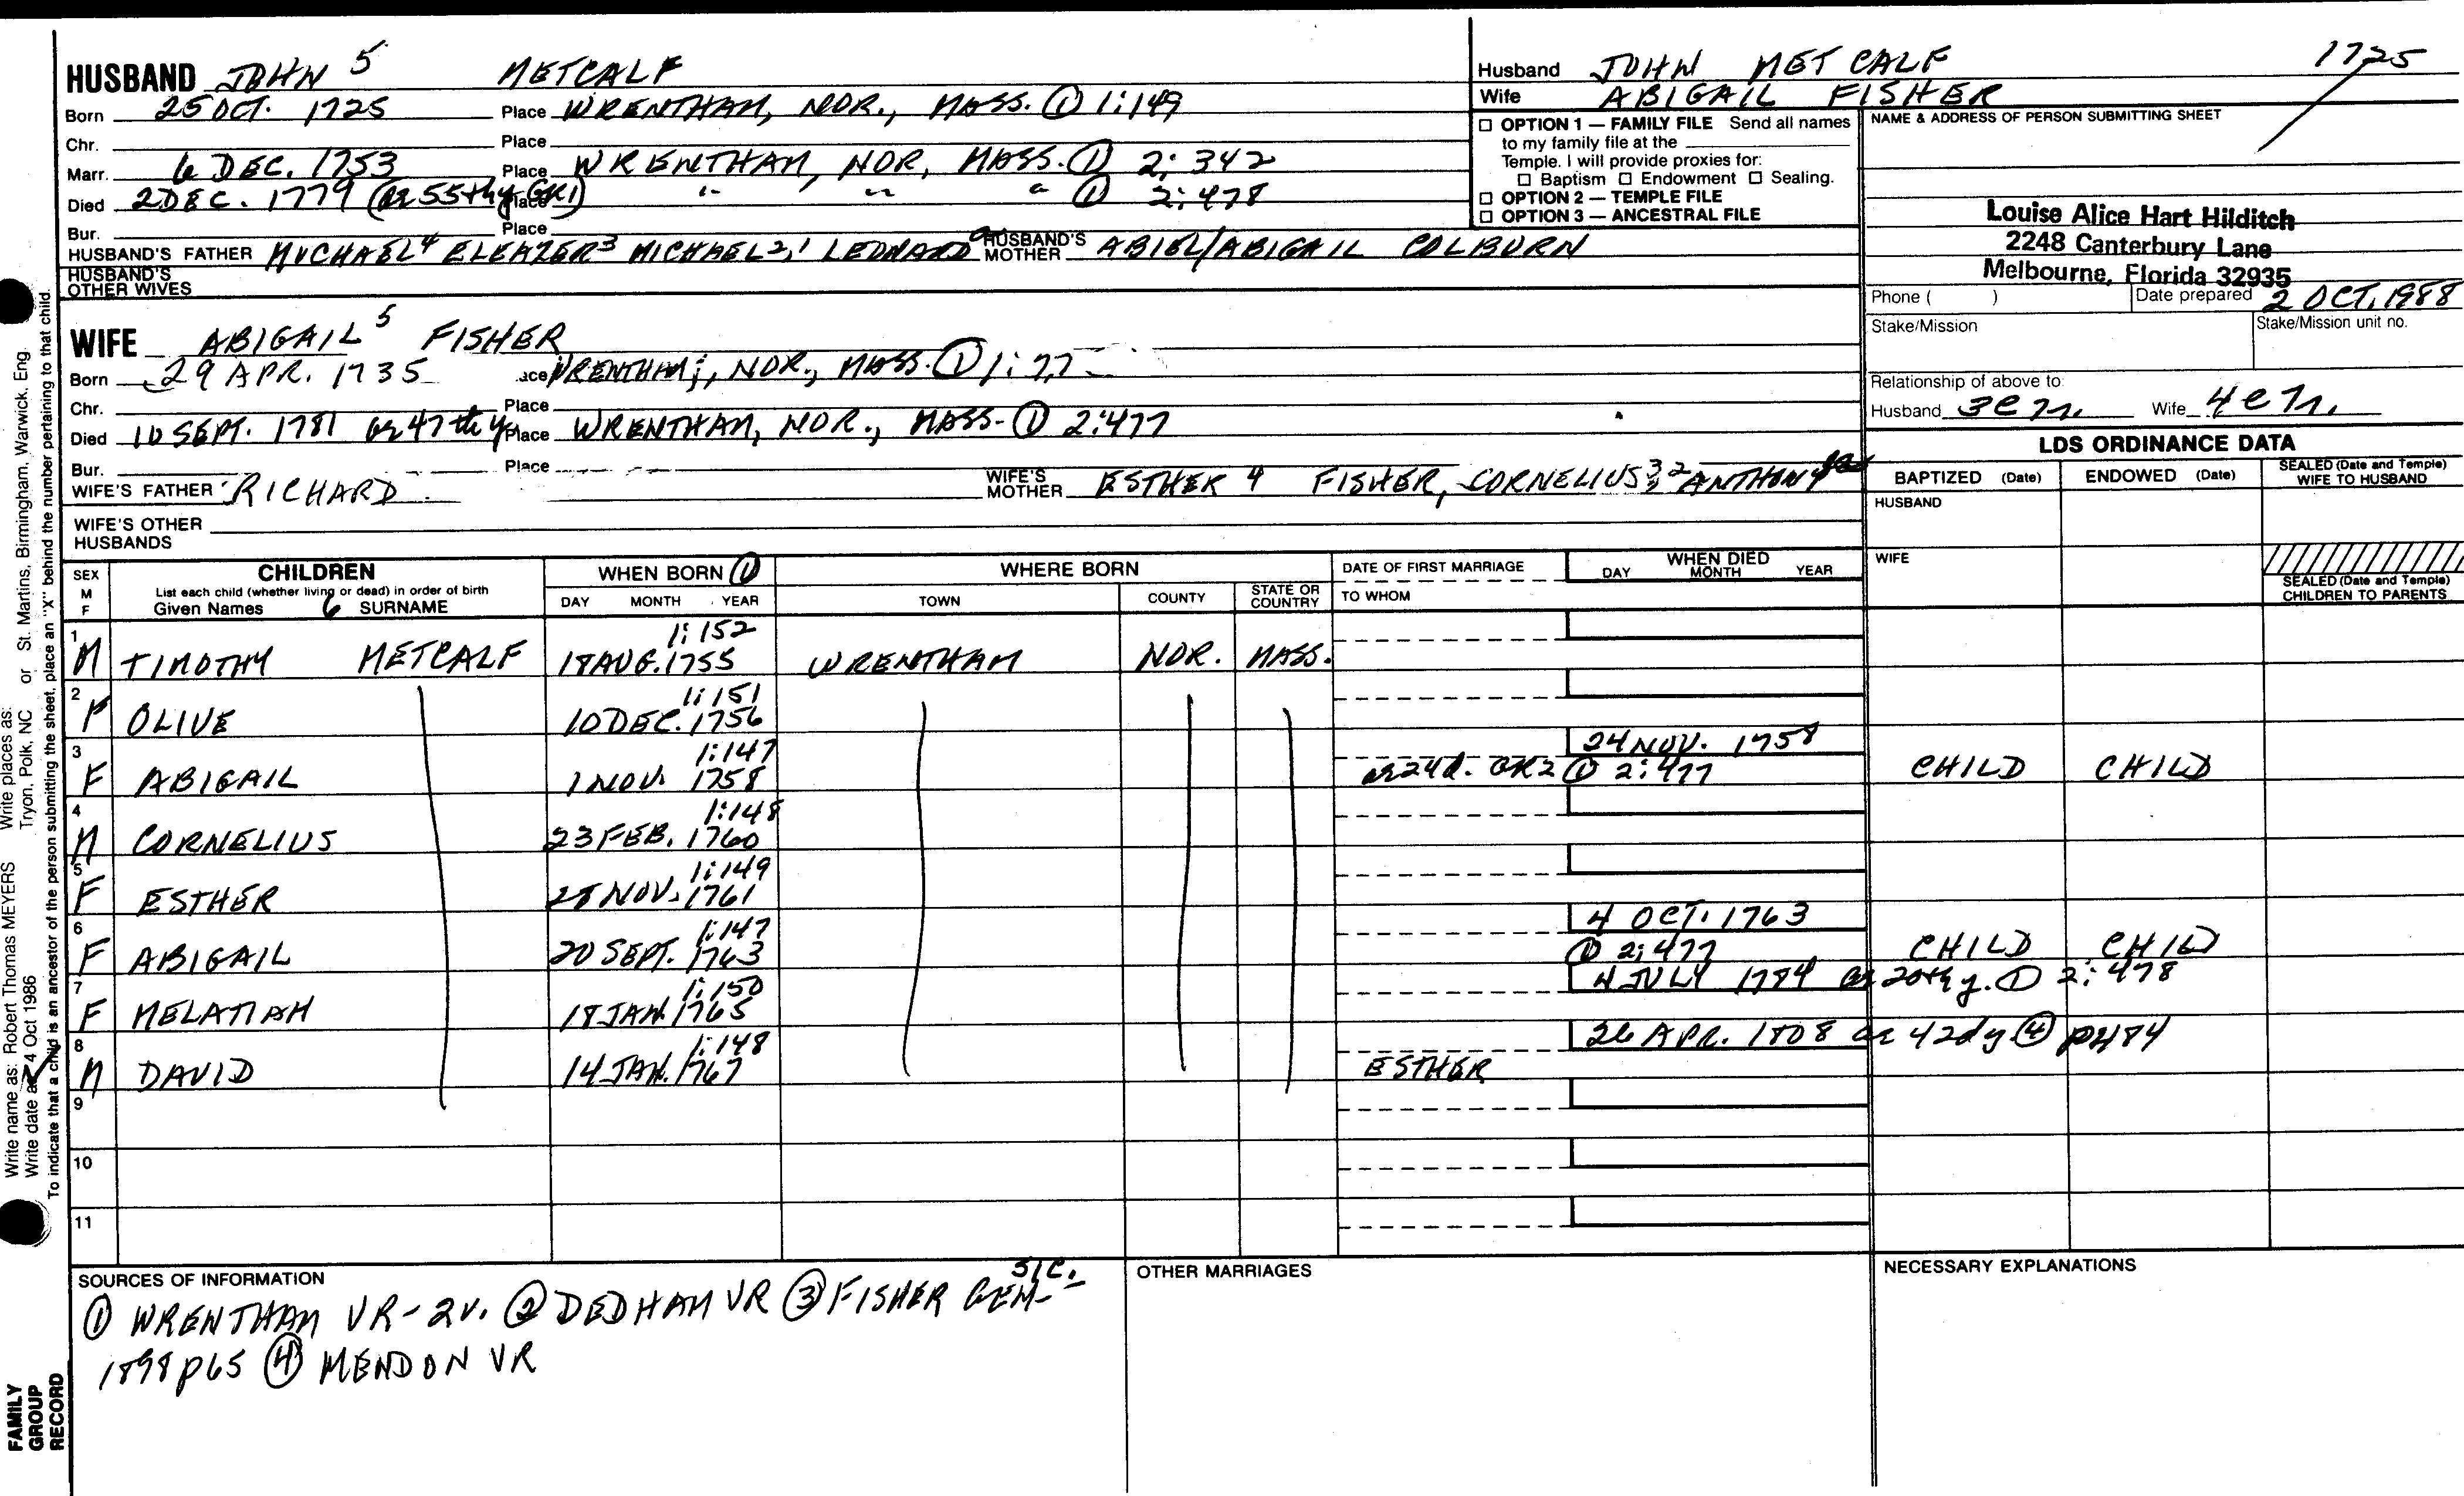 HUSBAND JOHN 5 METCALF
Born 25 OCT. 1725 Place WRENTHAM, NOR., MASS. ① 1:149
Chr. Place
Marr. 6 DEC. 1753 Place WRENTHAM, NOR, MASS. ① 2:342
Died 2 DEC. 1779 (ae 55th y GR1) Place " " " ① 2:478
Bur. Place
HUSBAND'S FATHER MICHAEL4 ELEAZER3 MICHAEL2,1 LEONARD HUSBAND'S MOTHER ABIEL/ABIGAIL COLBURN
HUSBAND'S OTHER WIVES
WIFE ABIGAIL 5 FISHER
Born 29 APR. 1735 Place WRENTHAM, NOR., MASS. ① 1:77
Chr. Place
Died 10 SEPT. 1781 ae 47th y Place WRENTHAM, NOR., MASS. ① 2:477
Bur. Place
WIFE'S FATHER RICHARD WIFE'S MOTHER ESTHER 4 FISHER, CORNELIUS 3 2 ANTHONY
WIFE'S OTHER HUSBANDS
Husband JOHN METCALF 1725
Wife ABIGAIL FISHER
☐ OPTION 1 — FAMILY FILE Send all names
to my family file at the
Temple. I will provide proxies for:
☐ Baptism ☐ Endowment ☐ Sealing.
☐ OPTION 2 — TEMPLE FILE
☐ OPTION 3 — ANCESTRAL FILE
NAME & ADDRESS OF PERSON SUBMITTING SHEET
Louise Alice Hart Hilditch
2248 Canterbury Lane
Melbourne, Florida 32935
Phone ( ) Date prepared 2 OCT. 1988
Stake/Mission Stake/Mission unit no.
Relationship of above to:
Husband 3C7r. Wife 4C7r.
LDS ORDINANCE DATA
BAPTIZED (Date) ENDOWED (Date) SEALED (Date and Temple) WIFE TO HUSBAND
HUSBAND
WIFE
SEALED (Date and Temple) CHILDREN TO PARENTS
SEX M F
CHILDREN
List each child (whether living or dead) in order of birth
Given Names 6 SURNAME
WHEN BORN ①
DAY MONTH YEAR
WHERE BORN
TOWN COUNTY STATE OR COUNTRY
DATE OF FIRST MARRIAGE
TO WHOM
WHEN DIED
DAY MONTH YEAR
1:152
1 M TIMOTHY METCALF 18 AUG. 1755 WRENTHAM NOR. MASS.
1:151
2 F OLIVE 10 DEC. 1756
1:147 24 NOV. 1758
3 F ABIGAIL 1 NOV. 1758 ae 24d. GR2 ① 2:477 CHILD CHILD
1:148
4 M CORNELIUS 23 FEB. 1760
1:149
5 F ESTHER 28 NOV. 1761
1:147 4 OCT. 1763
6 F ABIGAIL 20 SEPT. 1763 ① 2:477 CHILD CHILD
1:150 4 JULY 1784 ae 20th y. ① 2:478
7 F MELATIAH 18 JAN. 1765
1:148 26 APR. 1808 ae 42d y ④ p484
8 M DAVID 14 JAN. 1767 ESTHER
9
10
11
SOURCES OF INFORMATION
① WRENTHAM VR-2V. ② DEDHAM VR ③ FISHER GEN- SIC.
1898 p65 ④ MENDON VR
OTHER MARRIAGES
NECESSARY EXPLANATIONS
Write name as: Robert Thomas MEYERS Write places as: Tryon, Polk, NC or St. Martins, Birmingham, Warwick, Eng.
Write date as: 4 Oct 1986
To indicate that a child is an ancestor of the person submitting the sheet, place an "X" behind the number pertaining to that child.
FAMILY
GROUP
RECORD